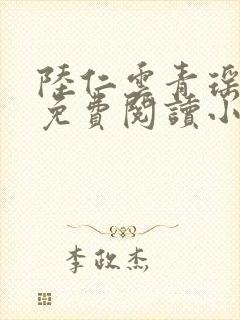 陸仁雲青瑤
免費閱讀小
李政杰